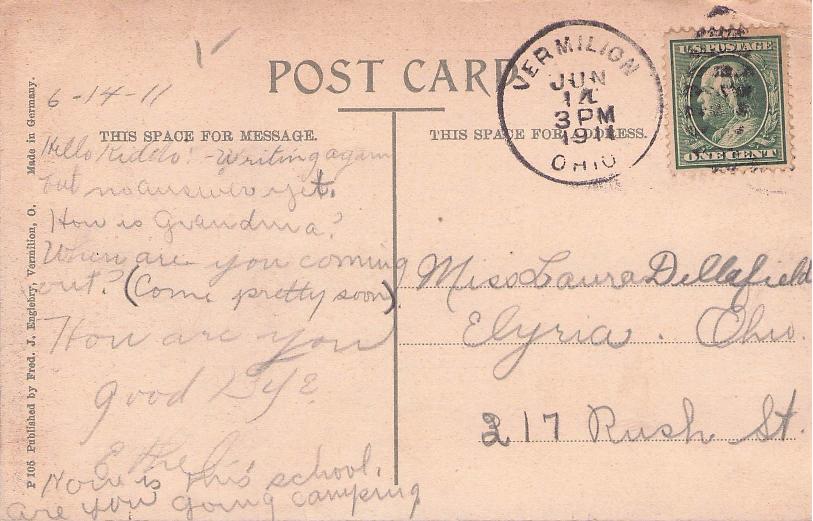 POST CARD
THIS SPACE FOR MESSAGE.
THIS SPACE FOR ADDRESS.
VERMILION
JUN
14
3 PM
1911
OHIO
U.S. POSTAGE
ONE CENT
6-14-11
Hello Kiddo! - Writing again
but no answer yet.
How is Grandma?
When are you coming
out? (Come pretty soon)
How are you
Good Bye
Ethel
How is this school.
are you going camping
Miss Laura Dellafield
Elyria. Ohio.
217 Rush St.
P 105 Published by Fred. J. Englebry, Vermilion, O. Made in Germany.